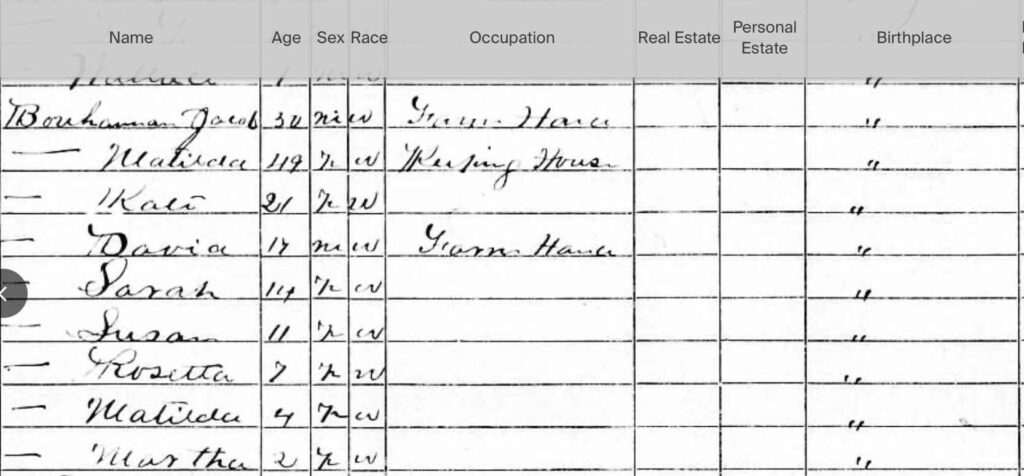 Name Age Sex Race Occupation Real Estate Personal Estate Birthplace
Wallace 1 m w "
Bouhannan Jacob 50 m w Farm Hand "
— Matilda 49 F w Keeping House "
— Kate 21 F W "
— David 17 m w Farm Hand "
— Sarah 14 F w "
— Susan 11 F w "
— Rosetta 7 F W "
— Matilda 4 F w "
— Martha 2 F w "